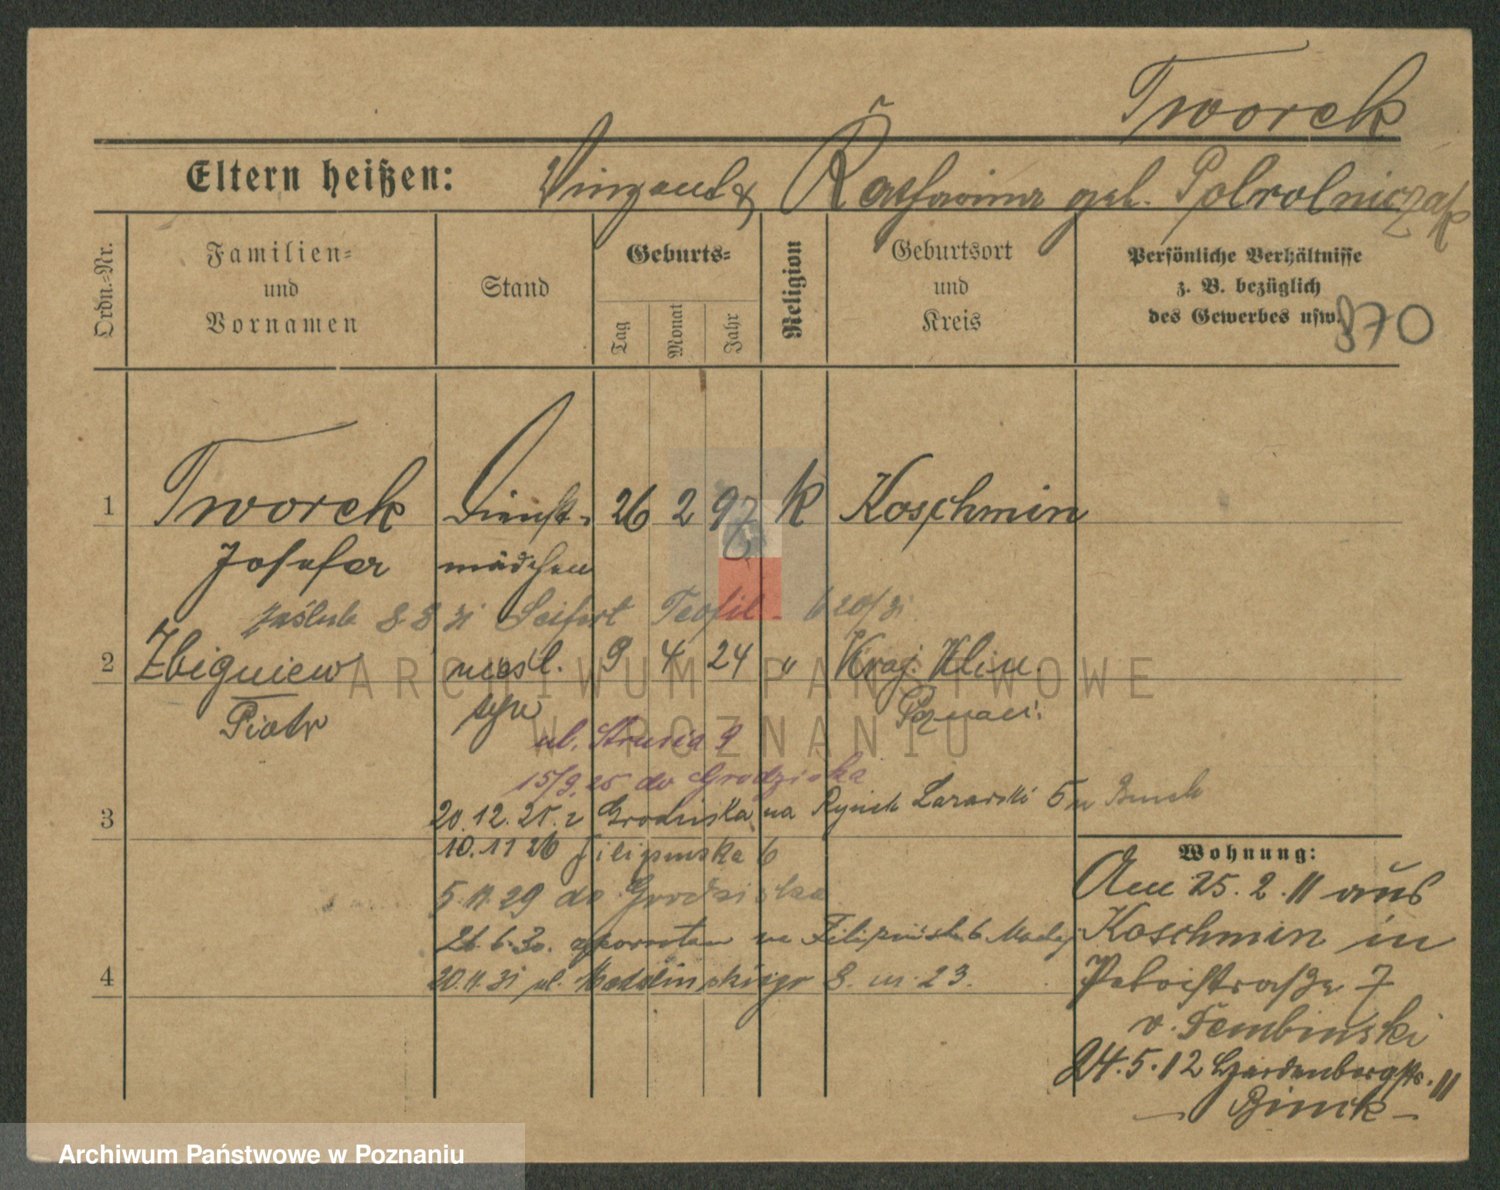 Tworek
Eltern heißen: Vinzent & Katharina geb. Polrolniczak
Ordn.-Nr.
Familien-
und
Vornamen
Stand
Geburts-
Tag
Monat
Jahr
Religion
Geburtsort
und
Kreis
Persönliche Verhältnisse
z. B. bezüglich
des Gewerbes usw.
870
1 Tworek Dienst- 26 2 97 K Koschmin
Josefa mädchen
zaślub 8 8 31 Seifert Teofil
2 Zbigniew nieśl. 9 4 24 "
Piotr syn Poznań
ul. Strusia 9
15/9.25 do Grodziska
3 20.12.25. z Grodziska na Rynek Łazarski 5
10.11 26 Filipińska 6
5.11.29 do Grodziska
26.6.30. z powrotem na Filipińska 6
4 20.11.31 ul. Madalińskiego 8. m. 23.
Wohnung:
Am 25.2.11 aus
Koschmin in
7
v. Dembinski
24.5.12 Hardenbergstr. 11
ARCHIWUM PAŃSTWOWE
W POZNANIU
Archiwum Państwowe w Poznaniu